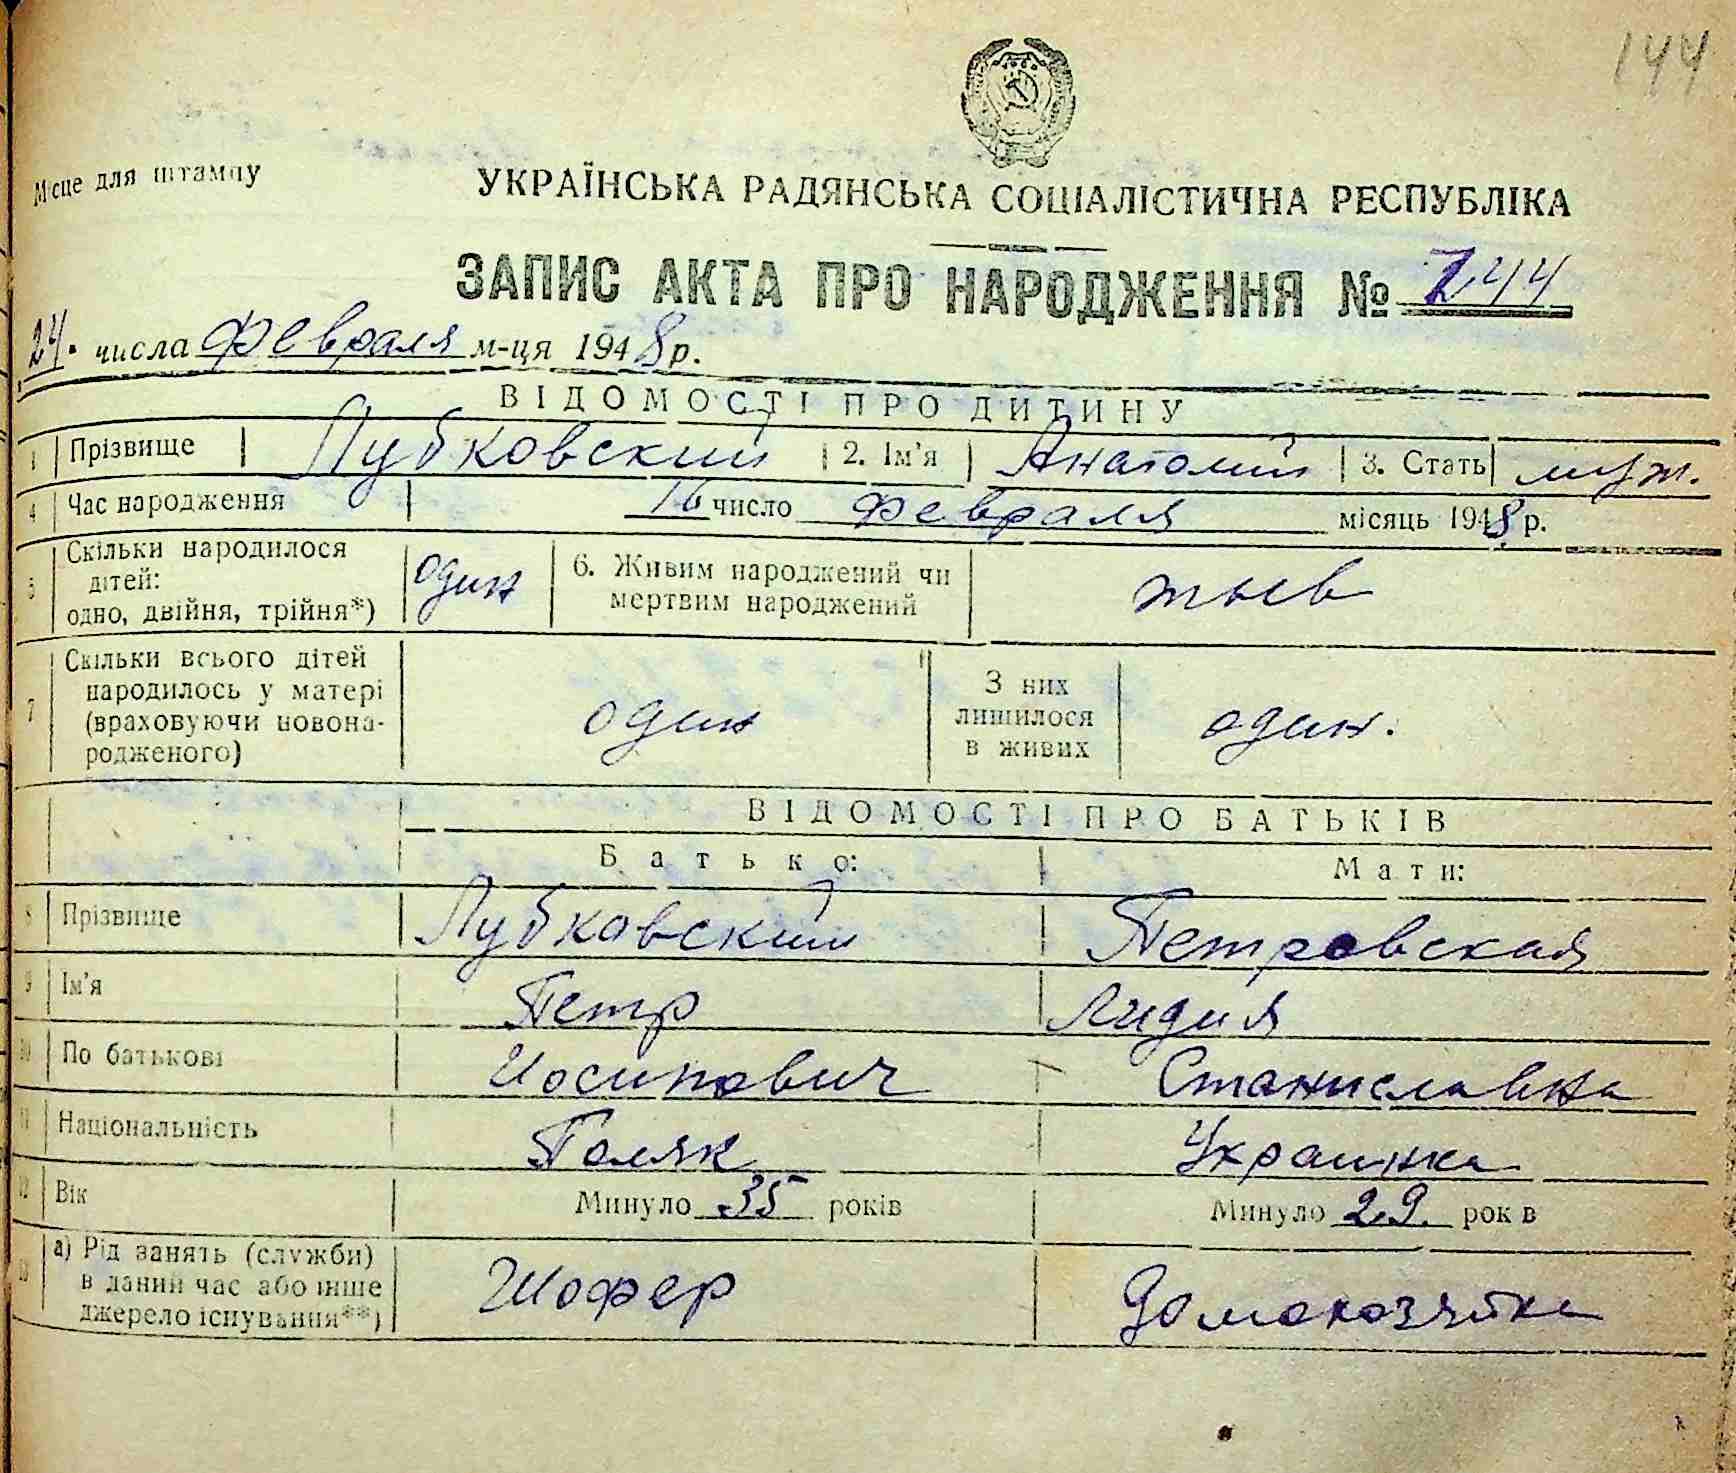 144
Місце для штампу
УКРАЇНСЬКА РАДЯНСЬКА СОЦІАЛІСТИЧНА РЕСПУБЛІКА
ЗАПИС АКТА ПРО НАРОДЖЕННЯ № 144
24. числа Февраля м-ця 1948 р.
ВІДОМОСТІ ПРО ДИТИНУ
1 Прізвище Лубковский 2. Ім'я Анатолий 3. Стать муж.
4 Час народження 16 число февраля місяць 1948 р.
5 Скільки народилося дітей: одно, двійня, трійня*) один 6. Живим народжений чи мертвим народжений жыв
7 Скільки всього дітей народилось у матері (враховуючи новонародженого) один З них лишилося в живих один.
ВІДОМОСТІ ПРО БАТЬКІВ
Батько: Мати:
8 Прізвище Лубковский Петровская
9 Ім'я Петр Лидия
10 По батькові Иосипович Станиславна
11 Національність Поляк Украинка
12 Вік Минуло 35 років Минуло 29. рок в
13 а) Рід занять (служби) в даний час або інше джерело існування**) Шофер Домохозяйка